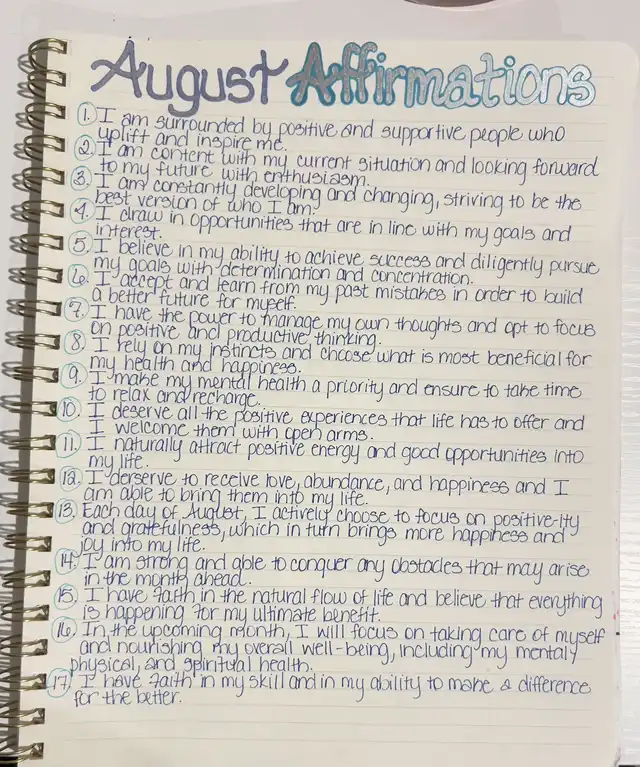 August Affirmations
1. I am surrounded by positive and supportive people who
uplift and inspire me.
2. I am content with my current situation and looking forward
to my future with enthusiasm.
3. I am constantly developing and changing, striving to be the
best version of who I am.
4. I draw in opportunities that are in line with my goals and
interest.
5. I believe in my ability to achieve success and diligently pursue
my goals with determination and concentration.
6. I accept and learn from my past mistakes in order to build
a better future for myself.
7. I have the power to manage my own thoughts and opt to focus
on positive and productive thinking.
8. I rely on my instincts and choose what is most beneficial for
my health and happiness.
9. I make my mental health a priority and ensure to take time
to relax and recharge.
10. I deserve all the positive experiences that life has to offer and
I welcome them with open arms.
11. I naturally attract positive energy and good opportunities into
my life.
12. I deserve to receive love, abundance, and happiness and I
am able to bring them into my life.
13. Each day of August, I actively choose to focus on positive-ity
and gratefulness, which in turn brings more happiness and
joy into my life.
14. I am strong and able to conquer any obstacles that may arise
in the month ahead.
15. I have faith in the natural flow of life and believe that everything
is happening for my ultimate benefit.
16. In the upcoming month, I will focus on taking care of myself
and nourishing my overall well-being, including my mentaly
physical, and spiritual health.
17. I have faith in my skill and in my ability to make a difference
for the better.